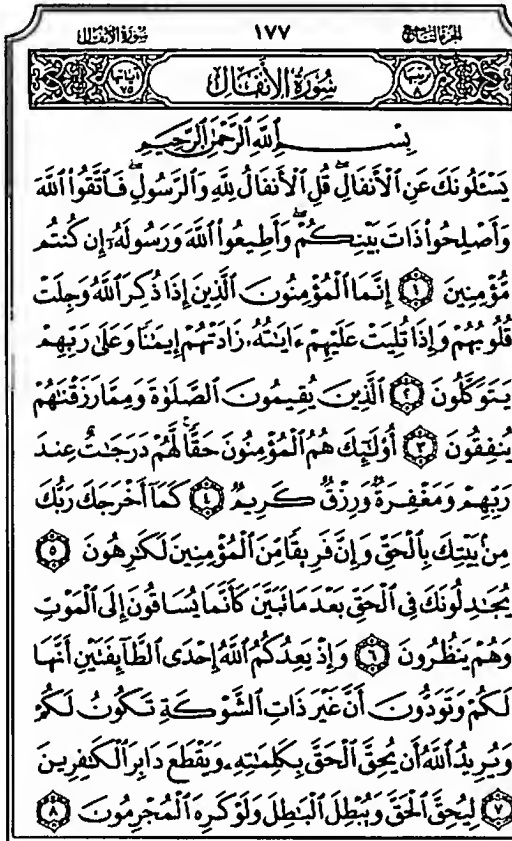 سُورَةُ الأَنفَالِ ١٧٧ الجزء التاسع
آياتها ٧٥ سُورَةُ الأَنْفَالِ ترتيبها ٨
بِسْمِ اللَّهِ الرَّحْمَٰنِ الرَّحِيمِ
يَسْـَٔلُونَكَ عَنِ ٱلْأَنفَالِۖ قُلِ ٱلْأَنفَالُ لِلَّهِ وَٱلرَّسُولِۖ فَٱتَّقُوا۟ ٱللَّهَ
وَأَصْلِحُوا۟ ذَاتَ بَيْنِكُمْۖ وَأَطِيعُوا۟ ٱللَّهَ وَرَسُولَهُۥٓ إِن كُنتُم
مُّؤْمِنِينَ ١ إِنَّمَا ٱلْمُؤْمِنُونَ ٱلَّذِينَ إِذَا ذُكِرَ ٱللَّهُ وَجِلَتْ
قُلُوبُهُمْ وَإِذَا تُلِيَتْ عَلَيْهِمْ ءَايَٰتُهُۥ زَادَتْهُمْ إِيمَٰنًا وَعَلَىٰ رَبِّهِمْ
يَتَوَكَّلُونَ ٢ ٱلَّذِينَ يُقِيمُونَ ٱلصَّلَوٰةَ وَمِمَّا رَزَقْنَٰهُمْ
يُنفِقُونَ ٣ أُو۟لَٰٓئِكَ هُمُ ٱلْمُؤْمِنُونَ حَقًّاۚ لَّهُمْ دَرَجَٰتٌ عِندَ
رَبِّهِمْ وَمَغْفِرَةٌ وَرِزْقٌ كَرِيمٌ ٤ كَمَآ أَخْرَجَكَ رَبُّكَ
مِنۢ بَيْتِكَ بِٱلْحَقِّ وَإِنَّ فَرِيقًا مِّنَ ٱلْمُؤْمِنِينَ لَكَٰرِهُونَ ٥
يُجَٰدِلُونَكَ فِى ٱلْحَقِّ بَعْدَ مَا تَبَيَّنَ كَأَنَّمَا يُسَاقُونَ إِلَى ٱلْمَوْتِ
وَهُمْ يَنظُرُونَ ٦ وَإِذْ يَعِدُكُمُ ٱللَّهُ إِحْدَى ٱلطَّآئِفَتَيْنِ أَنَّهَا
لَكُمْ وَتَوَدُّونَ أَنَّ غَيْرَ ذَاتِ ٱلشَّوْكَةِ تَكُونُ لَكُمْ
وَيُرِيدُ ٱللَّهُ أَن يُحِقَّ ٱلْحَقَّ بِكَلِمَٰتِهِۦ وَيَقْطَعَ دَابِرَ ٱلْكَٰفِرِينَ
٧ لِيُحِقَّ ٱلْحَقَّ وَيُبْطِلَ ٱلْبَٰطِلَ وَلَوْ كَرِهَ ٱلْمُجْرِمُونَ ٨